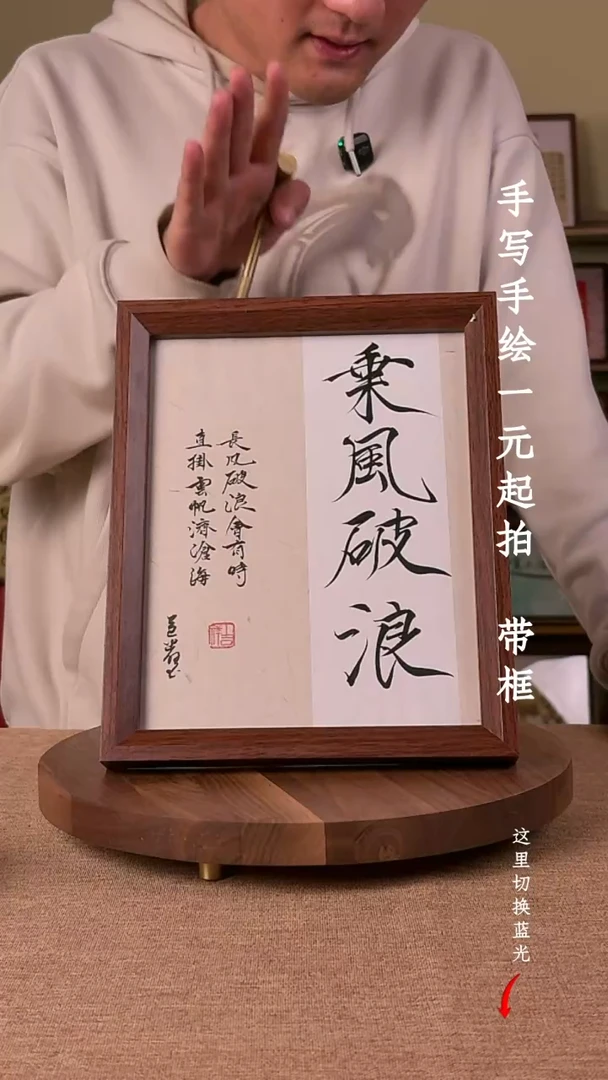 手写手绘一元起拍 带框
乘風破浪
長风破浪會有時
直掛雲帆濟滄海
这里切换蓝光